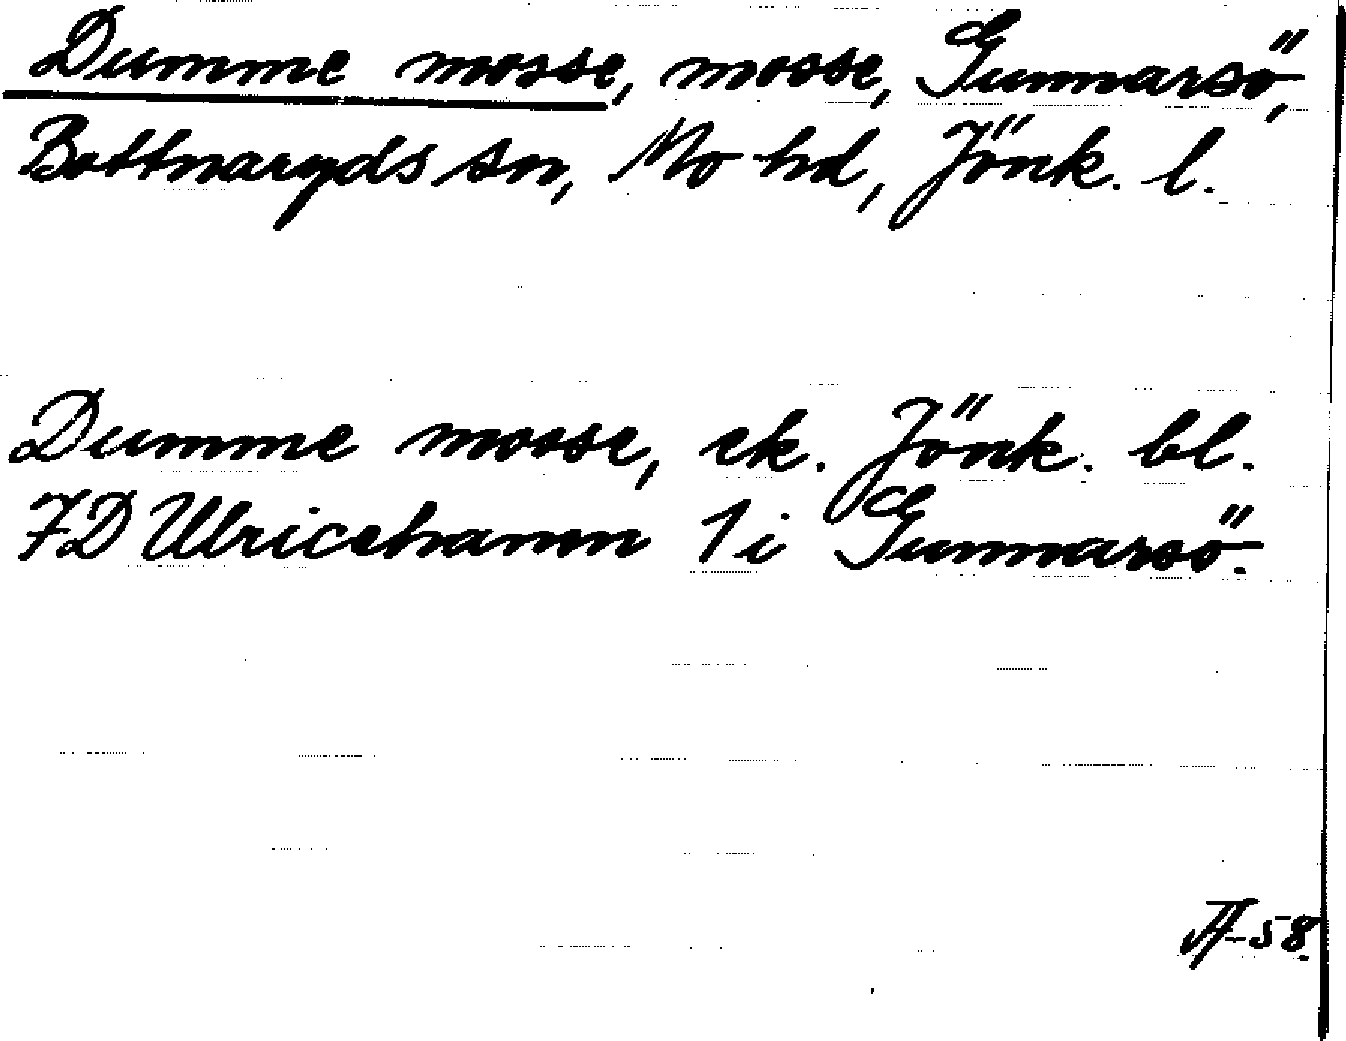 Dumme mosse, mosse, Gunnarsö,
Bottnaryds sn, Mo hd, Jönk. l.
Dumme mosse, ek. Jönk. bl.
7D Ulricehamn 1 i Gunnarsö.
58.